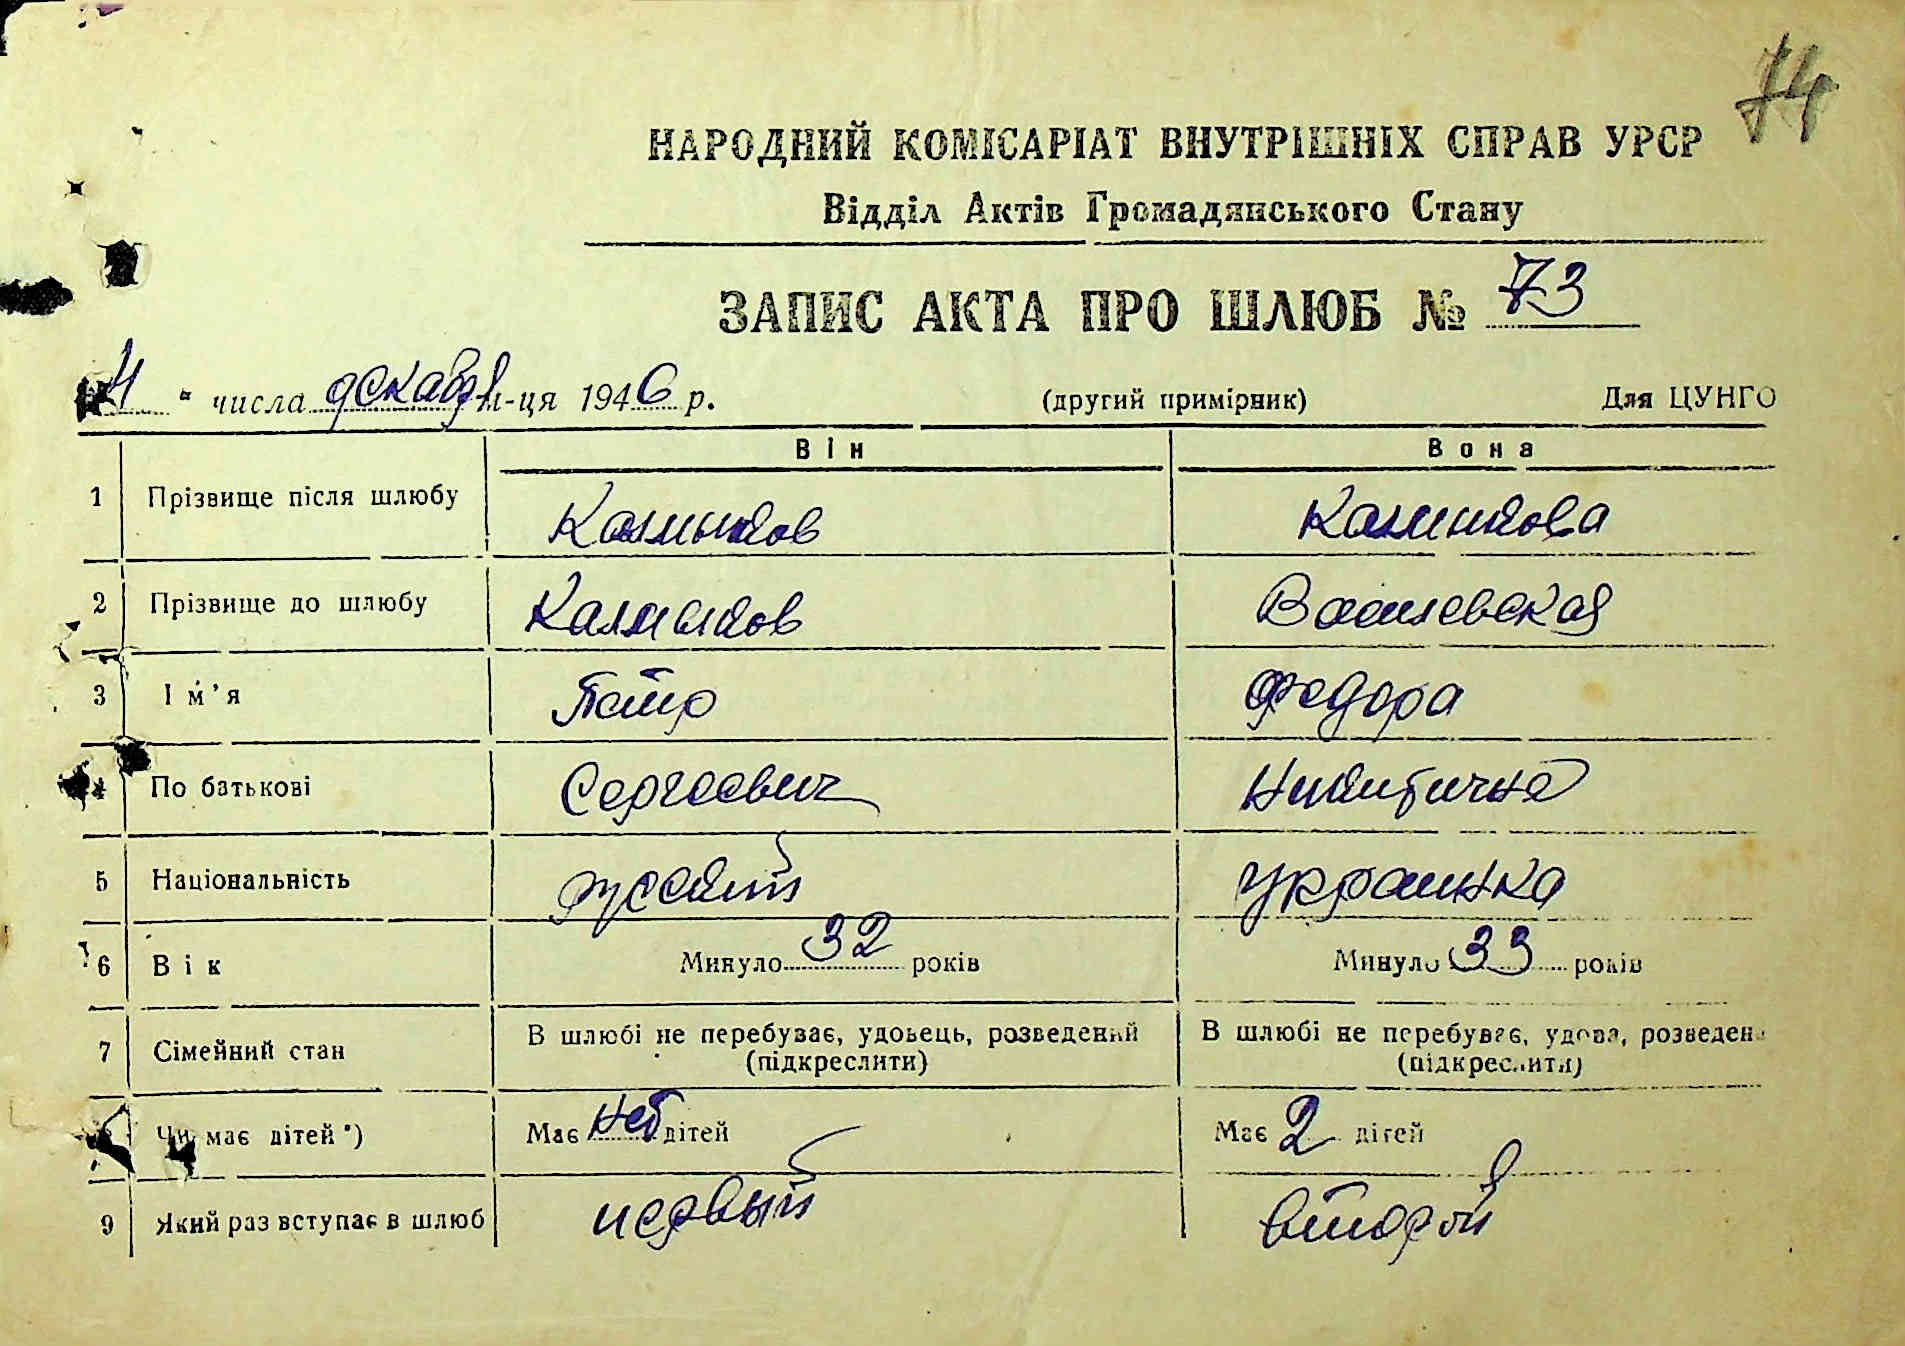 74
НАРОДНИЙ КОМІСАРІАТ ВНУТРІШНІХ СПРАВ УРСР
Відділ Актів Громадянського Стану
ЗАПИС АКТА ПРО ШЛЮБ № 73
4 " числа декабря м-ця 1946 р. (другий примірник) Для ЦУНГО
Він Вона
1 Прізвище після шлюбу Калмыков Калмыкова
2 Прізвище до шлюбу Калмыков Василевская
3 Ім'я Петр Федора
4 По батькові Сергеевич Никитична
5 Національність русский украинка
6 Вік Минуло 32 років Минуло 33 років
7 Сімейний стан В шлюбі не перебуває, удовець, розведений В шлюбі не перебуває, удова, розведена
(підкреслити) (підкреслити)
Чи має дітей *) Має нет дітей Має 2 дітей
9 Який раз вступає в шлюб первый второй